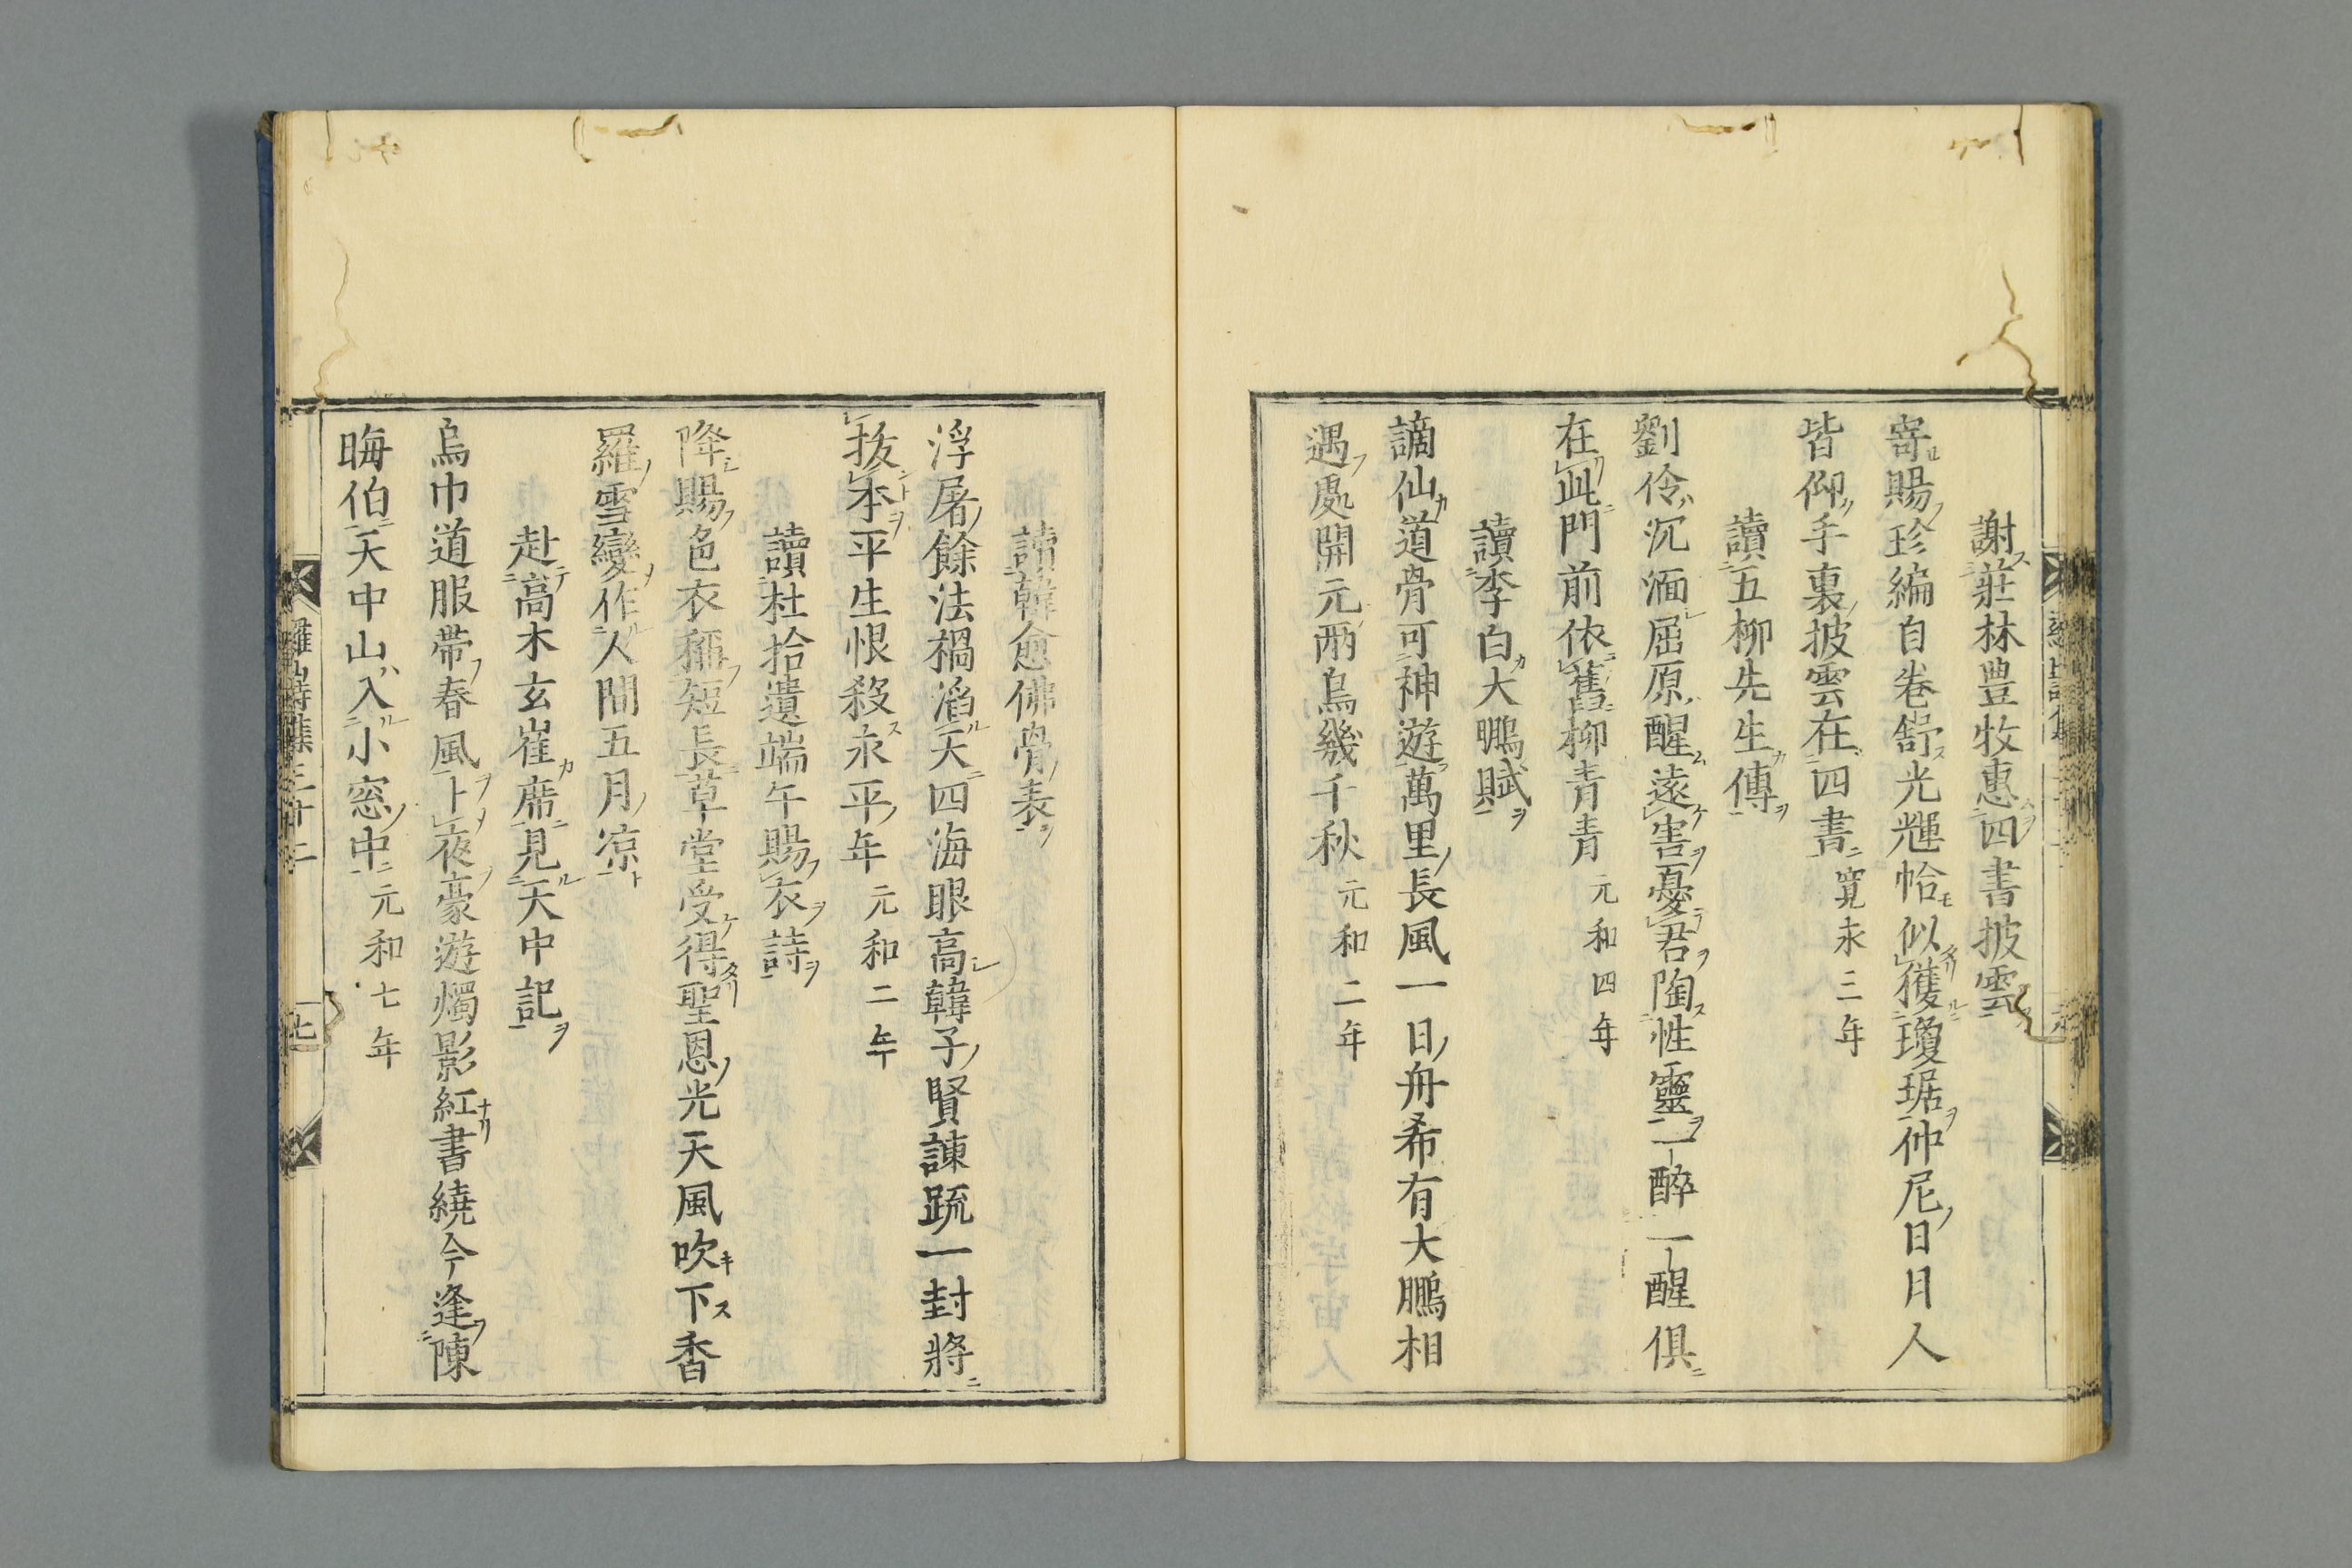 謝莊林豊牧惠四書披雲
寄賜珍編自卷舒光輝恰似獲瓊琚仲尼日月人
皆仰手裏披雲在四書 寛永三年
讀五柳先生傳
劉伶沉湎屈原醒遠害憂君陶性靈一醉一醒俱
在此門前依舊柳青青 元和四年
讀李白大鵬賦
謫仙道骨可神遊萬里長風一日舟希有大鵬相
遇處開元兩鳥幾千秋 元和二年
讀韓愈佛骨表
浮屠餘法禍滔天四海眼高韓子賢諫疏一封將
拔本平生恨殺永平年 元和二年
讀杜拾遺端午賜衣詩
降賜色衣稱短長草堂受得聖恩光天風吹下香
羅雪變作人間五月凉
赴高木玄崔席見天中記
烏巾道服帶春風卜夜豪遊燭影紅書繞今逢陳
晦伯天中山入小窓中 元和七年
羅山詩集三十二
七